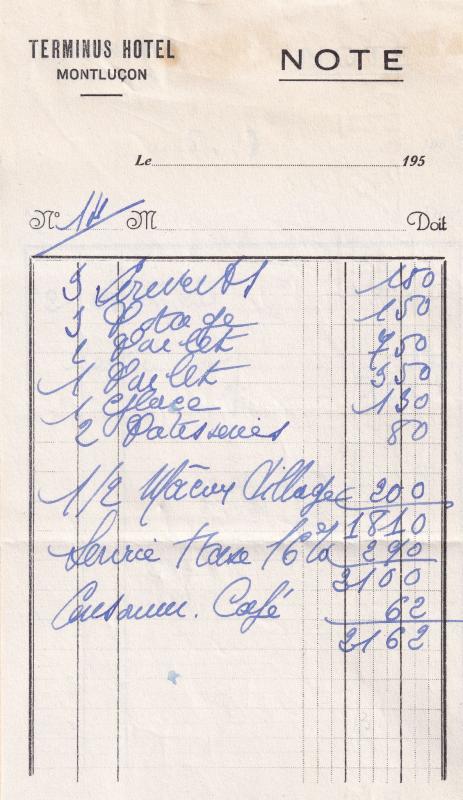 TERMINUS HOTEL
MONTLUÇON
NOTE
Le 195
N° 14 M Doit
3 Couverts 150
3 Potage 150
2 Poulet 750
1 Poulet 350
1 Glace 130
2 Patisseries 80
1/2 Mâcon Village 200
1810
Servie Taxe 16% 290
2100
Consomm. Café 62
2162